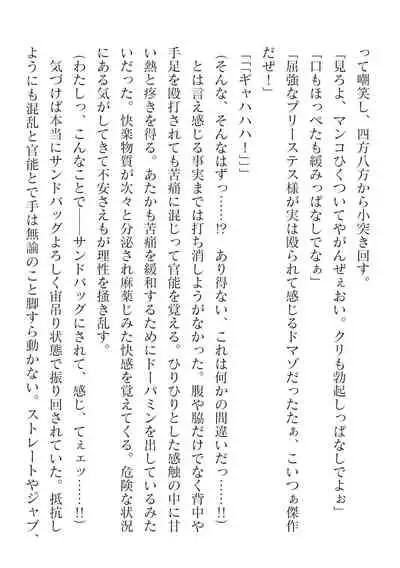 って嘲笑し、四方八方から小突き回す。
「見ろよ、マンコひくついてやがんぜぇおい。クリも勃起しっぱなしでよぉ」
「口もほっぺたも緩みっぱなしでなぁ」
「屈強なプリーステス様が実は殴られて感じるドマゾだったたぁ、こいつぁ傑作
だぜ！」
「「ギャハハハ！」」
（そんな、そんなはずっ……!?　あり得ない、これは何かの間違いだっ……!!）
とは言え感じる事実までは打ち消しようがなかった。腹や脇だけでなく背中や
手足を殴打されても苦痛に混じって官能を覚える。ひりひりとした感触の中に甘
い熱と疼きを得る。あたかも苦痛を緩和するためにドーパミンを出しているみた
いだった。快楽物質が次々と分泌され麻薬じみた快感を覚えてくる。危険な状況
に思える気がしてきて不安さえもが理性を掻き乱す。
（わたしっ、こんなことで――サンドバッグにされて、感じ、てぇェッ……!!）
気づけば本当にサンドバッグよろしく宙吊り状態で振り回されていた。抵抗し
ようにも混乱と官能とで手は無論のこと脚すら動かない。ストレートやジャブ、